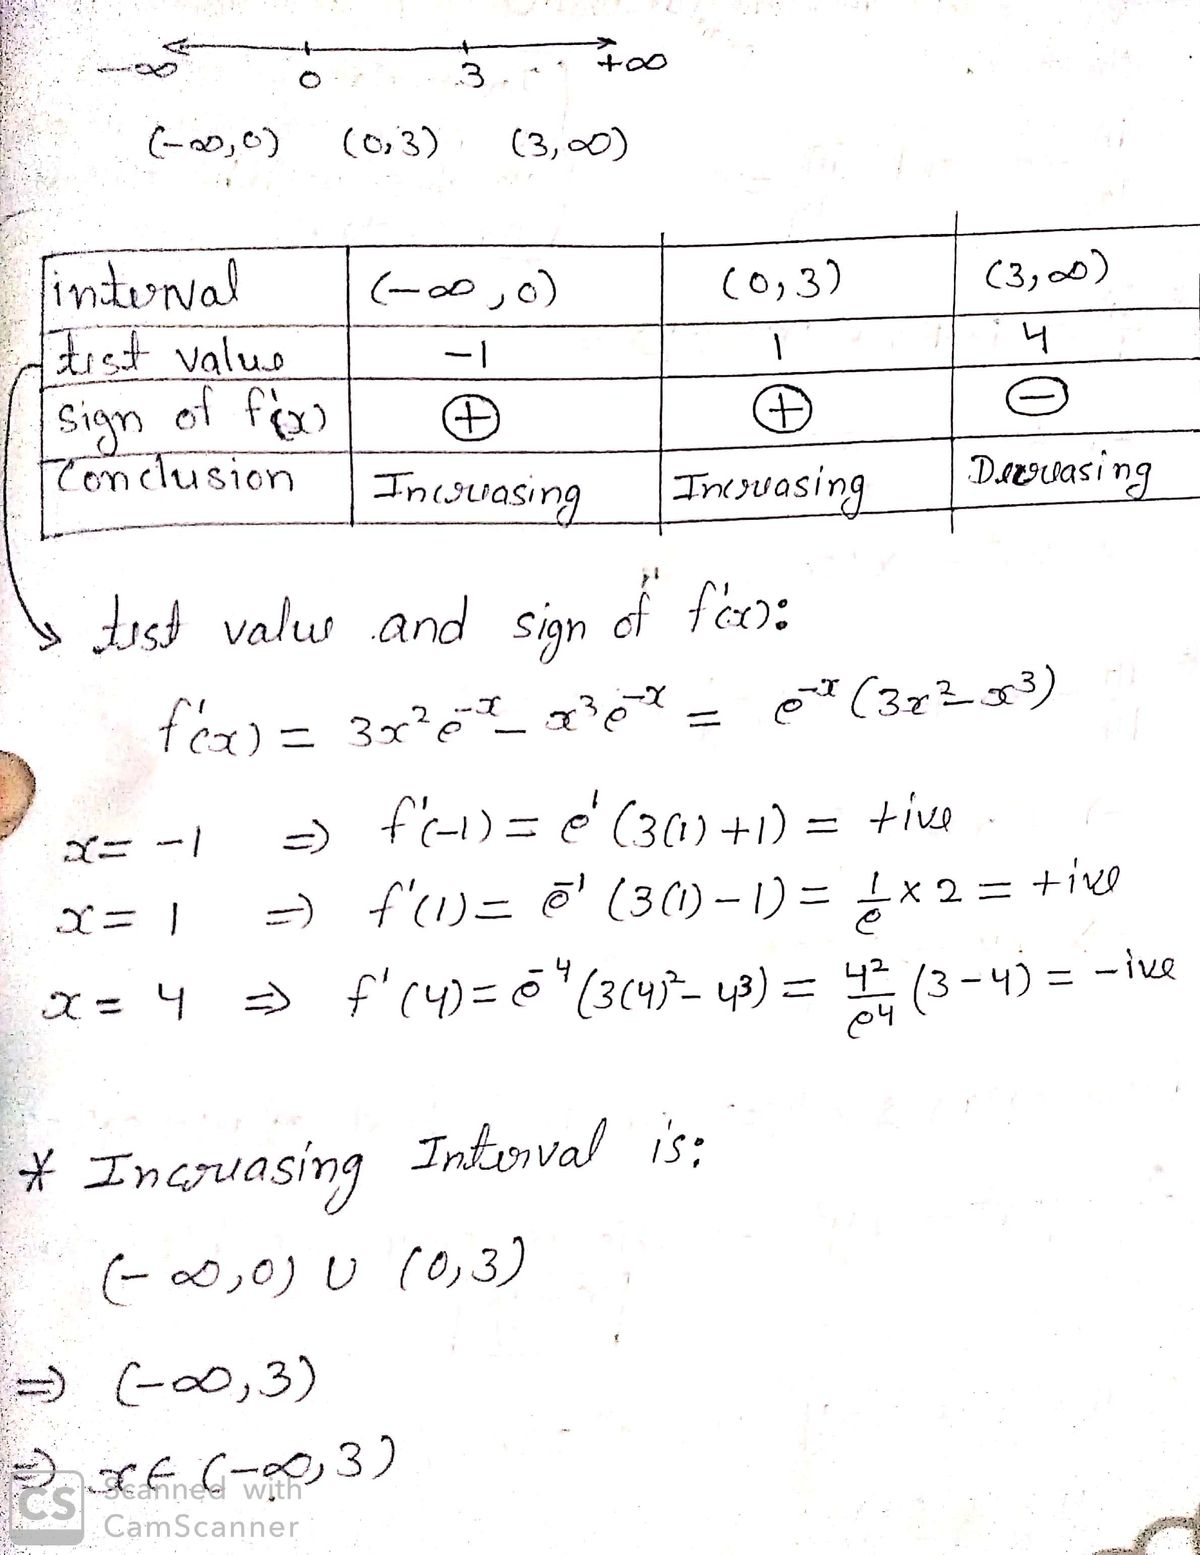 -∞ 0 3 +∞
(-∞,0) (0,3) (3,∞)
interval (-∞,0) (0,3) (3,∞)
test value -1 1 4
sign of f'(x) + + -
Conclusion Increasing Increasing Decreasing
test value and sign of f'(x):
f'(x) = 3x²e⁻ˣ - x³e⁻ˣ = e⁻ˣ(3x²-x³)
x = -1 ⇒ f'(-1) = e¹(3(1)+1) = +ive
x = 1 ⇒ f'(1) = e⁻¹(3(1)-1) = 1/e × 2 = +ive
x = 4 ⇒ f'(4) = e⁻⁴(3(4)²-4³) = 4²/e⁴ (3-4) = -ive
* Increasing Interval is:
(-∞,0) ∪ (0,3)
⇒ (-∞,3)
⇒ x∈ (-∞,3)
CS Scanned with
CamScanner